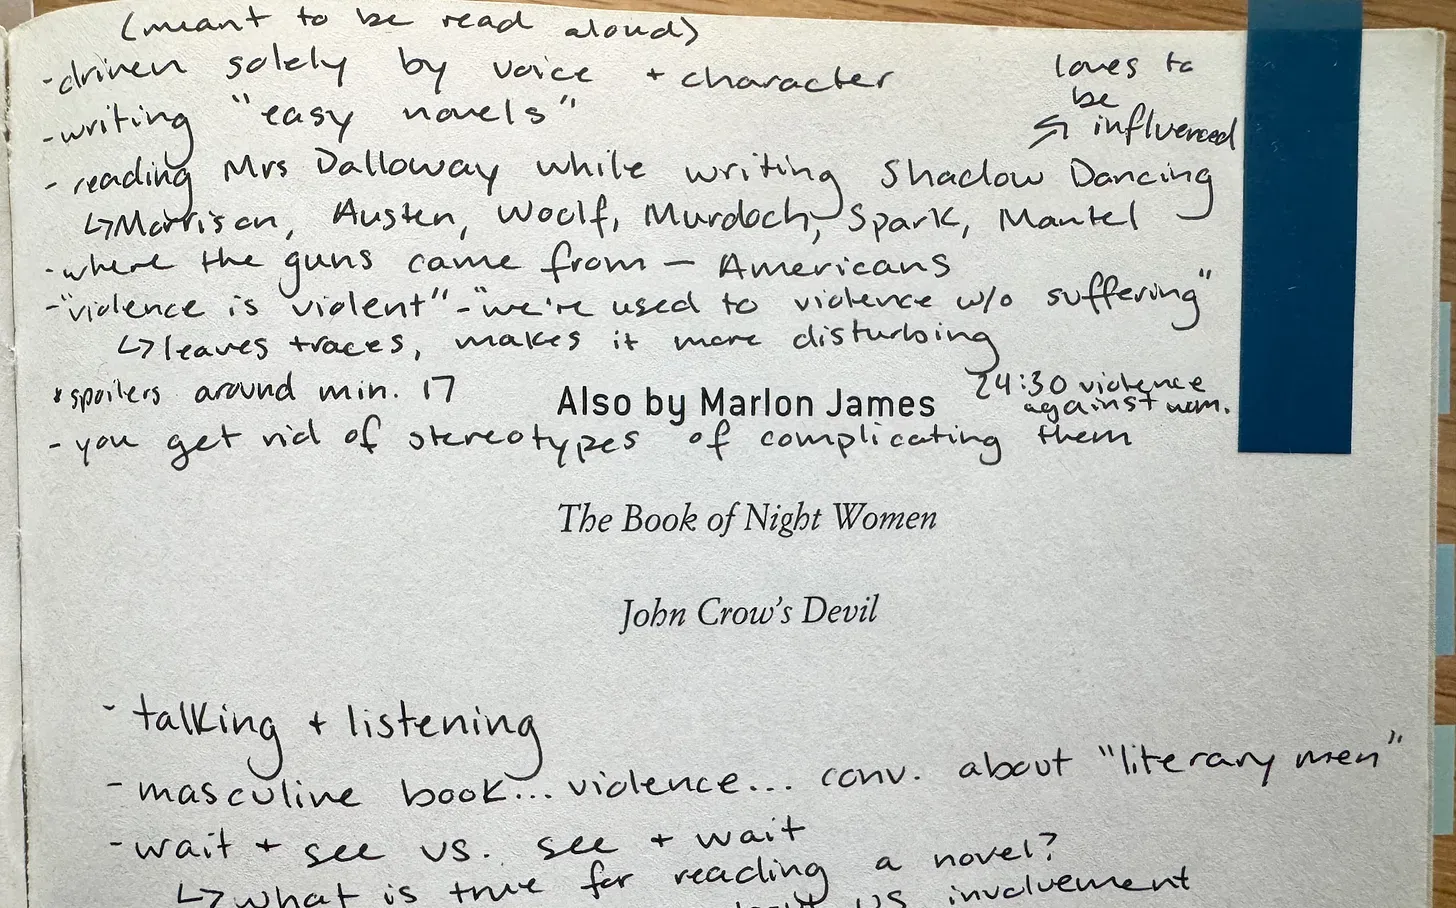 (meant to be read aloud)
-driven solely by voice + character
loves to
be
influenced
-writing "easy novels"
- reading Mrs Dalloway while writing Shadow Dancing
↳Morrison, Austen, Woolf, Murdoch, Spark, Mantel
-where the guns came from — Americans
-"violence is violent" -"we're used to violence w/o suffering"
↳leaves traces, makes it more disturbing
*spoilers around min. 17
Also by Marlon James
24:30 violence
against wom.
-you get rid of stereotypes of complicating them
The Book of Night Women
John Crow's Devil
-talking + listening
-masculine book... violence... conv. about "literary men"
-wait + see vs. see + wait
↳what is true for reading a novel?
US involvement